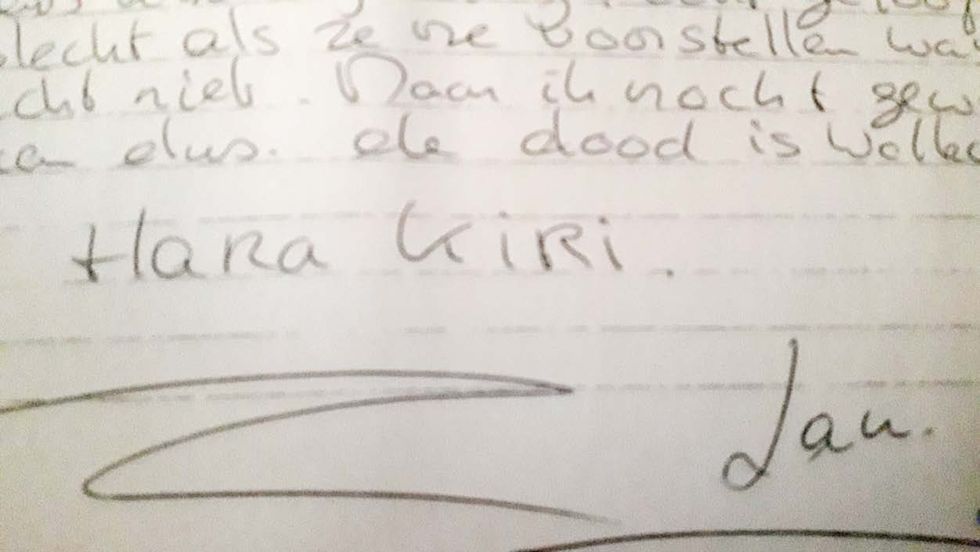 slecht als ze me voorstellen was
echt niet. Maar ik nocht gew
dus. de dood is Welko
Hara Kiri.
Jan.